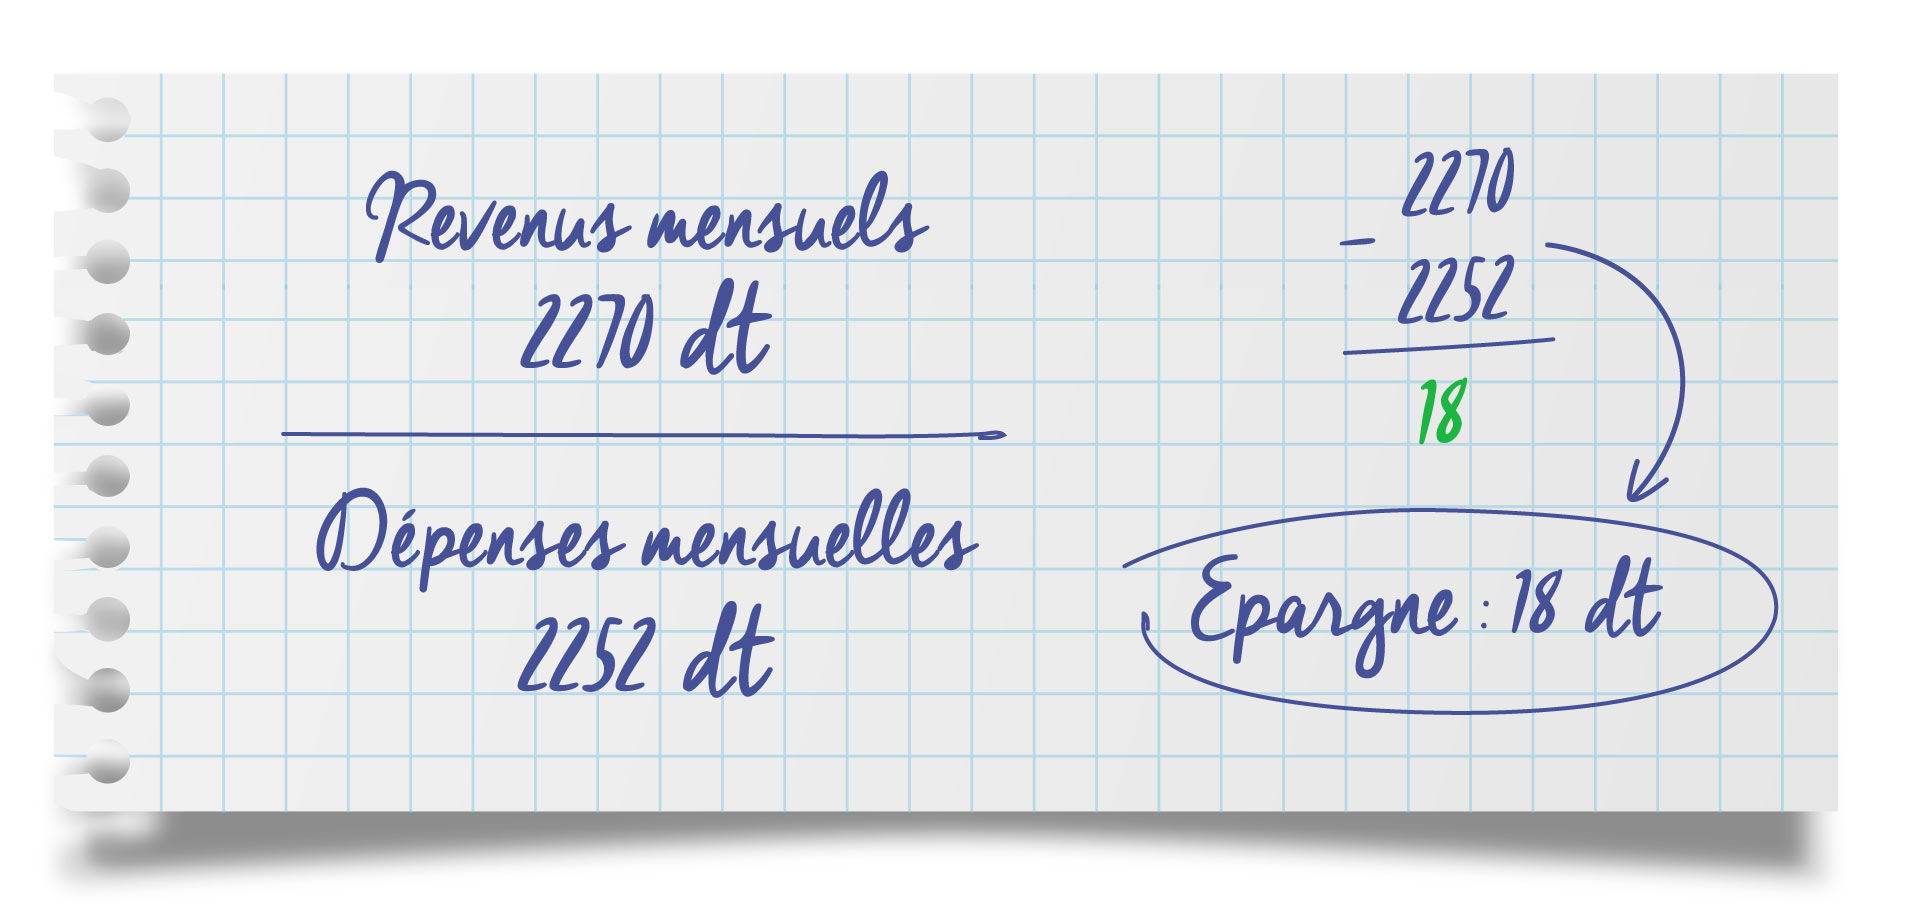 Revenus mensuels
2270 dt
Dépenses mensuelles
2252 dt
2270
-
2252
18
Epargne : 18 dt